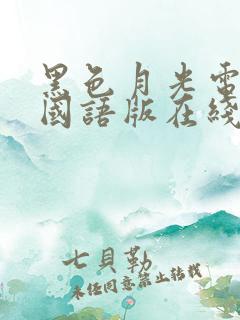 黑色月光電
國語版在綫
七貝勒
未經同意禁止轉載